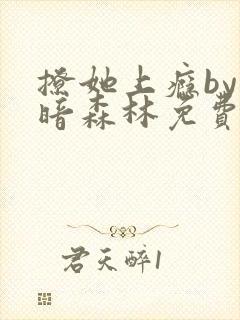 撩她上癮by
暗森林免費
君天醉1